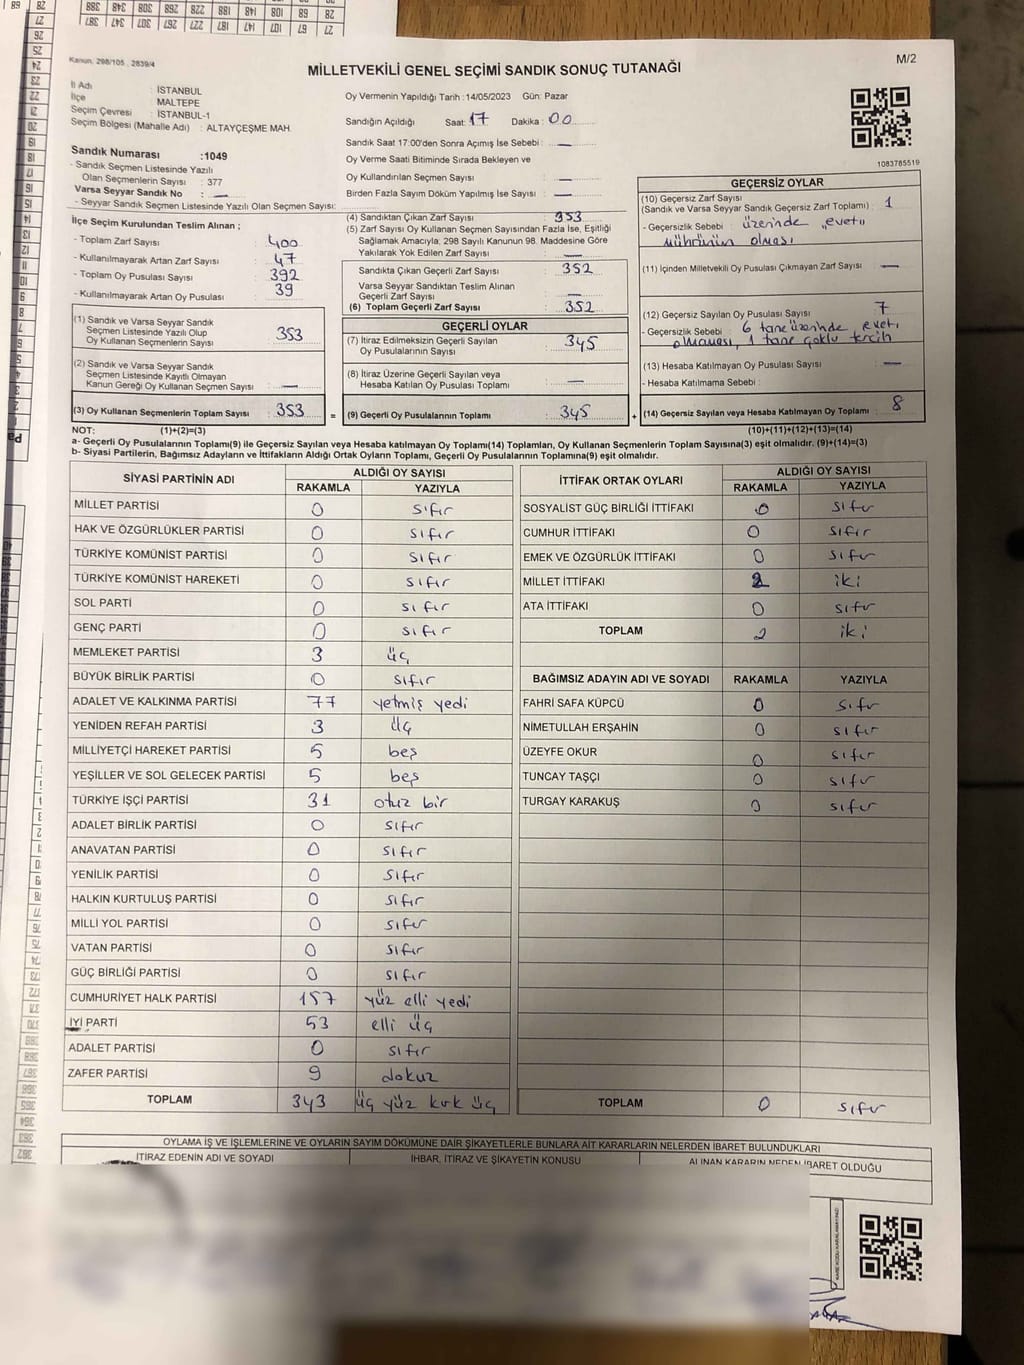 Kanun. 298/105 . 2839/4
M/2
MİLLETVEKİLİ GENEL SEÇİMİ SANDIK SONUÇ TUTANAĞI
İl Adı : İSTANBUL
İlçe : MALTEPE
Seçim Çevresi : İSTANBUL-1
Seçim Bölgesi (Mahalle Adı) : ALTAYÇEŞME MAH.
Sandık Numarası :1049
- Sandık Seçmen Listesinde Yazılı
Olan Seçmenlerin Sayısı : 377
Varsa Seyyar Sandık No : —
- Seyyar Sandık Seçmen Listesinde Yazılı Olan Seçmen Sayısı:
Oy Vermenin Yapıldığı Tarih :14/05/2023 Gün: Pazar
Sandığın Açıldığı Saat: 17 Dakika : 00
Sandık Saat 17:00'den Sonra Açımış İse Sebebi : —
Oy Verme Saati Bitiminde Sırada Bekleyen ve
Oy Kullandırılan Seçmen Sayısı : —
Birden Fazla Sayım Döküm Yapılmış İse Sayısı : —
1083785519
İlçe Seçim Kurulundan Teslim Alınan ;
- Toplam Zarf Sayısı : 400
- Kullanılmayarak Artan Zarf Sayısı : 47
- Toplam Oy Pusulası Sayısı : 392
- Kullanılmayarak Artan Oy Pusulası : 39
(1) Sandık ve Varsa Seyyar Sandık
Seçmen Listesinde Yazılı Olup
Oy Kullanan Seçmenlerin Sayısı : 353
(2) Sandık ve Varsa Seyyar Sandık
Seçmen Listesinde Kayıtlı Olmayan
Kanun Gereği Oy Kullanan Seçmen Sayısı : —
(3) Oy Kullanan Seçmenlerin Toplam Sayısı : 353 =
(4) Sandıktan Çıkan Zarf Sayısı : 353
(5) Zarf Sayısı Oy Kullanan Seçmen Sayısından Fazla İse, Eşitliği
Sağlamak Amacıyla; 298 Sayılı Kanunun 98. Maddesine Göre
Yakılarak Yok Edilen Zarf Sayısı : —
Sandıkta Çıkan Geçerli Zarf Sayısı : 352
Varsa Seyyar Sandıktan Teslim Alınan
Geçerli Zarf Sayısı : —
(6) Toplam Geçerli Zarf Sayısı : 352
GEÇERLİ OYLAR
(7) İtiraz Edilmeksizin Geçerli Sayılan
Oy Pusulalarının Sayısı : 345
(8) İtiraz Üzerine Geçerli Sayılan veya
Hesaba Katılan Oy Pusulası Toplamı : —
(9) Geçerli Oy Pusulalarının Toplamı : 345 +
GEÇERSİZ OYLAR
(10) Geçersiz Zarf Sayısı
(Sandık ve Varsa Seyyar Sandık Geçersiz Zarf Toplamı) : 1
- Geçersizlik Sebebi : üzerinde „evet„
mührünün olması
(11) İçinden Milletvekili Oy Pusulası Çıkmayan Zarf Sayısı : —
(12) Geçersiz Sayılan Oy Pusulası Sayısı : 7
- Geçersizlik Sebebi : 6 tane üzerinde evet,
olmaması, 1 tane çoklu tercih
(13) Hesaba Katılmayan Oy Pusulası Sayısı : —
- Hesaba Katılmama Sebebi :
(14) Geçersiz Sayılan veya Hesaba Katılmayan Oy Toplamı : 8
NOT: (1)+(2)=(3) (10)+(11)+(12)+(13)=(14)
a- Geçerli Oy Pusulalarının Toplamı(9) ile Geçersiz Sayılan veya Hesaba katılmayan Oy Toplamı(14) Toplamları, Oy Kullanan Seçmenlerin Toplam Sayısına(3) eşit olmalıdır. (9)+(14)=(3)
b- Siyasi Partilerin, Bağımsız Adayların ve İttifakların Aldığı Oyların Toplamı, Geçerli Oy Pusulalarının Toplamına(9) eşit olmalıdır.
SİYASİ PARTİNİN ADI ALDIĞI OY SAYISI
RAKAMLA YAZIYLA
MİLLET PARTİSİ 0 sıfır
HAK VE ÖZGÜRLÜKLER PARTİSİ 0 sıfır
TÜRKİYE KOMÜNİST PARTİSİ 0 sıfır
TÜRKİYE KOMÜNİST HAREKETİ 0 sıfır
SOL PARTİ 0 sıfır
GENÇ PARTİ 0 sıfır
MEMLEKET PARTİSİ 3 üç
BÜYÜK BİRLİK PARTİSİ 0 sıfır
ADALET VE KALKINMA PARTİSİ 77 yetmiş yedi
YENİDEN REFAH PARTİSİ 3 üç
MİLLİYETÇİ HAREKET PARTİSİ 5 beş
YEŞİLLER VE SOL GELECEK PARTİSİ 5 beş
TÜRKİYE İŞÇİ PARTİSİ 31 otuz bir
ADALET BİRLİK PARTİSİ 0 sıfır
ANAVATAN PARTİSİ 0 sıfır
YENİLİK PARTİSİ 0 sıfır
HALKIN KURTULUŞ PARTİSİ 0 sıfır
MİLLİ YOL PARTİSİ 0 sıfır
VATAN PARTİSİ 0 sıfır
GÜÇ BİRLİĞİ PARTİSİ 0 sıfır
CUMHURİYET HALK PARTİSİ 157 yüz elli yedi
İYİ PARTİ 53 elli üç
ADALET PARTİSİ 0 sıfır
ZAFER PARTİSİ 9 dokuz
TOPLAM 343 üç yüz kırk üç
İTTİFAK ORTAK OYLARI ALDIĞI OY SAYISI
RAKAMLA YAZIYLA
SOSYALİST GÜÇ BİRLİĞİ İTTİFAKI 0 sıfır
CUMHUR İTTİFAKI 0 sıfır
EMEK VE ÖZGÜRLÜK İTTİFAKI 0 sıfır
MİLLET İTTİFAKI 2 iki
ATA İTTİFAKI 0 sıfır
TOPLAM 2 iki
BAĞIMSIZ ADAYIN ADI VE SOYADI RAKAMLA YAZIYLA
FAHRİ SAFA KÜPCÜ 0 sıfır
NİMETULLAH ERŞAHİN 0 sıfır
ÜZEYFE OKUR 0 sıfır
TUNCAY TAŞÇI 0 sıfır
TURGAY KARAKUŞ 0 sıfır
TOPLAM 0 sıfır
OYLAMA İŞ VE İŞLEMLERİNE VE OYLARIN SAYIM DÖKÜMÜNE DAİR ŞİKAYETLERLE BUNLARA AİT KARARLARIN NELERDEN İBARET BULUNDUKLARI
İTİRAZ EDENİN ADI VE SOYADI İHBAR, İTİRAZ VE ŞİKAYETİN KONUSU ALINAN KARARIN NEDEN İBARET OLDUĞU